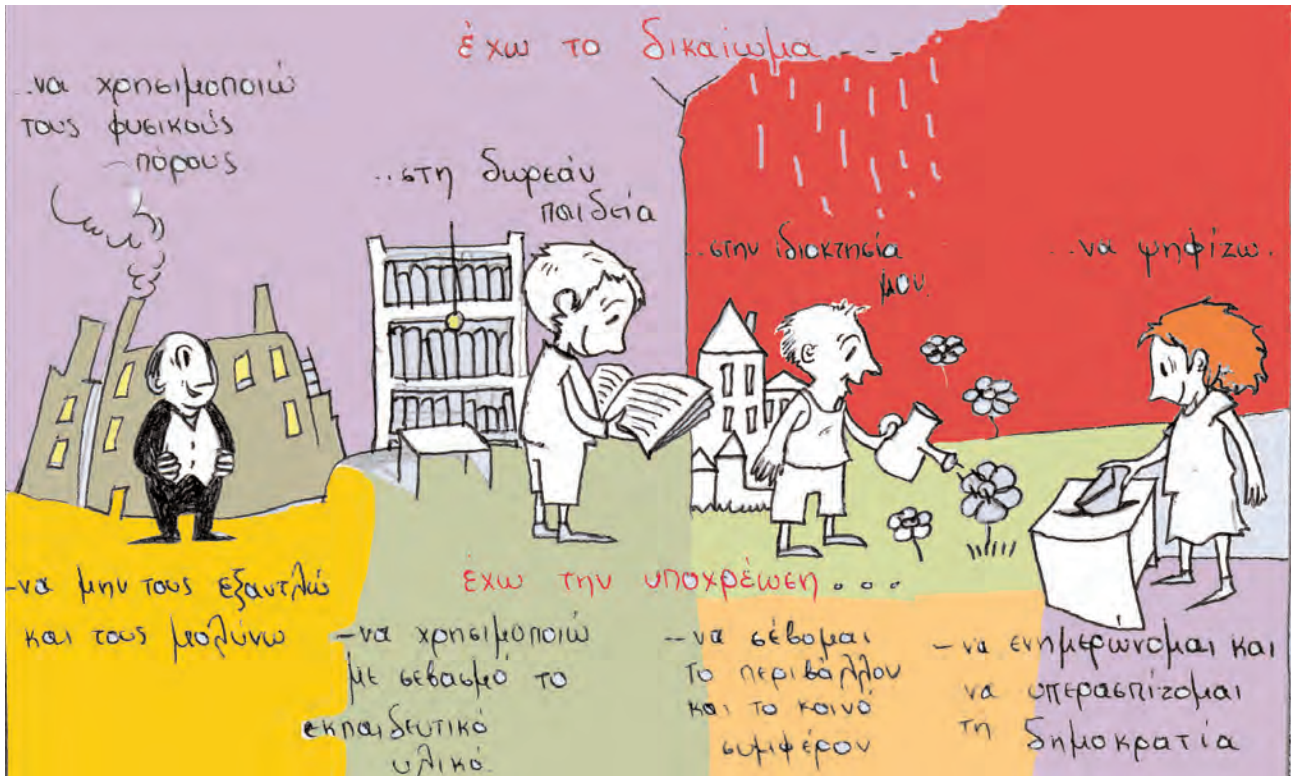 έχω το δικαίωμα - - - -
..να χρησιμοποιώ
τους φυσικούς
πόρους
..στη δωρεάν
παιδεία
..στην ιδιοκτησία
μου.
..να ψηφίζω.
έχω την υποχρέωση...
-να μην τους εξαντλώ
και τους μολύνω
-να χρησιμοποιώ
με σεβασμό το
εκπαιδευτικό
υλικό.
-να σέβομαι
το περιβάλλον
και το κοινό
συμφέρον
-να ενημερώνομαι και
να υπερασπίζομαι
τη δημοκρατία